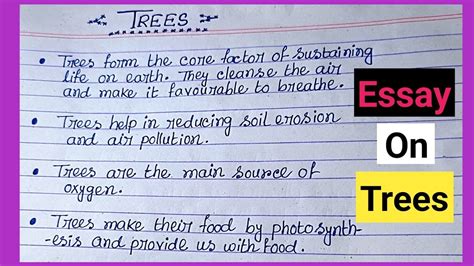 TREES
• Trees form the core factor of sustaining
life on earth. They cleanse the air
and make it favourable to breathe.
• Trees help in reducing soil erosion
and air pollution.
• Trees are the main source of
oxygen.
• Trees make their food by photosynth-
-esis and provide us with food.
Essay
On
Trees